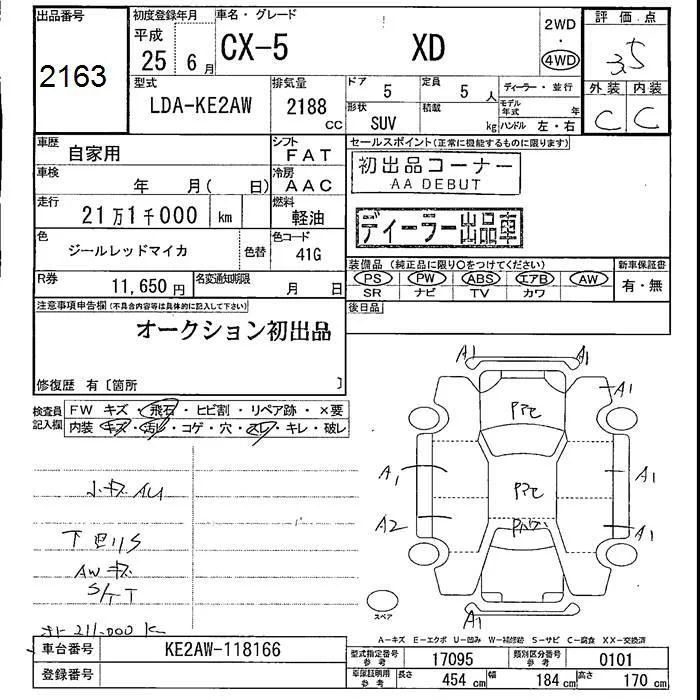 出品番号
2163
初度登録年月
平成
25 6月
車名・グレード
CX-5 XD
2WD
・
4WD
評価点
3.5
外装 内装
C C
型式
LDA-KE2AW
排気量
2188
CC
ドア
5
定員
5人
ディーラー・並行
形状
SUV
積載
kg
モデル年式 年
ハンドル 左・右
車歴
自家用
シフト
FAT
セールスポイント(正常に機能する物に限ります)
初出品コーナー
AA DEBUT
ディーラー出品車
車検
年 月( 日)
冷房
AAC
走行
21万1千000 km
燃料
軽油
色
ジールレッドマイカ
色替
色コード
41G
装備品(純正品に限り○をつけてください)
PS PW ABS エアB AW
SR ナビ TV カワ
新車保証書
有・無
R券
11,650円
名変通知期限
月 日
後日品
注意事項申告欄(不具合内容等は具体的に記入して下さい)
オークション初出品
修復歴 有〔箇所 〕
検査員記入欄
FW キズ・飛石・ヒビ割・リペア跡・×要
内装 キズ・汚レ・コゲ・穴・スレ・キレ・破レ
小キズ AU
下回りS
AWキズ
S/T T
211,000 K
A1 A1
A1
A1 A1
A2 A1
A1
スペア
A-キズ E-エクボ U-凹み W-補修跡 S-サビ C-腐食 XX-交換済
車台番号
KE2AW-118166
登録番号
型式指定番号
参考
17095
類別区分番号
参考
0101
車庫証明用
参考
長さ
454 cm
幅
184 cm
高さ
170 cm